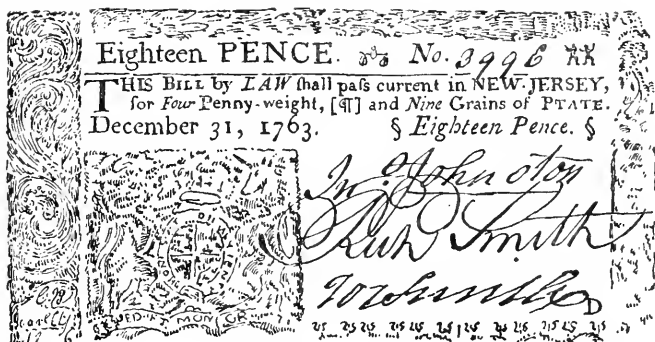 Eighteen PENCE. No. 3996
THIS BILL by LAW shall pass current in NEW-JERSEY,
for Four Penny-weight, [¶] and Nine Grains of PTATE.
December 31, 1763. § Eighteen Pence. §
Jno. Johnston
Rich Smith